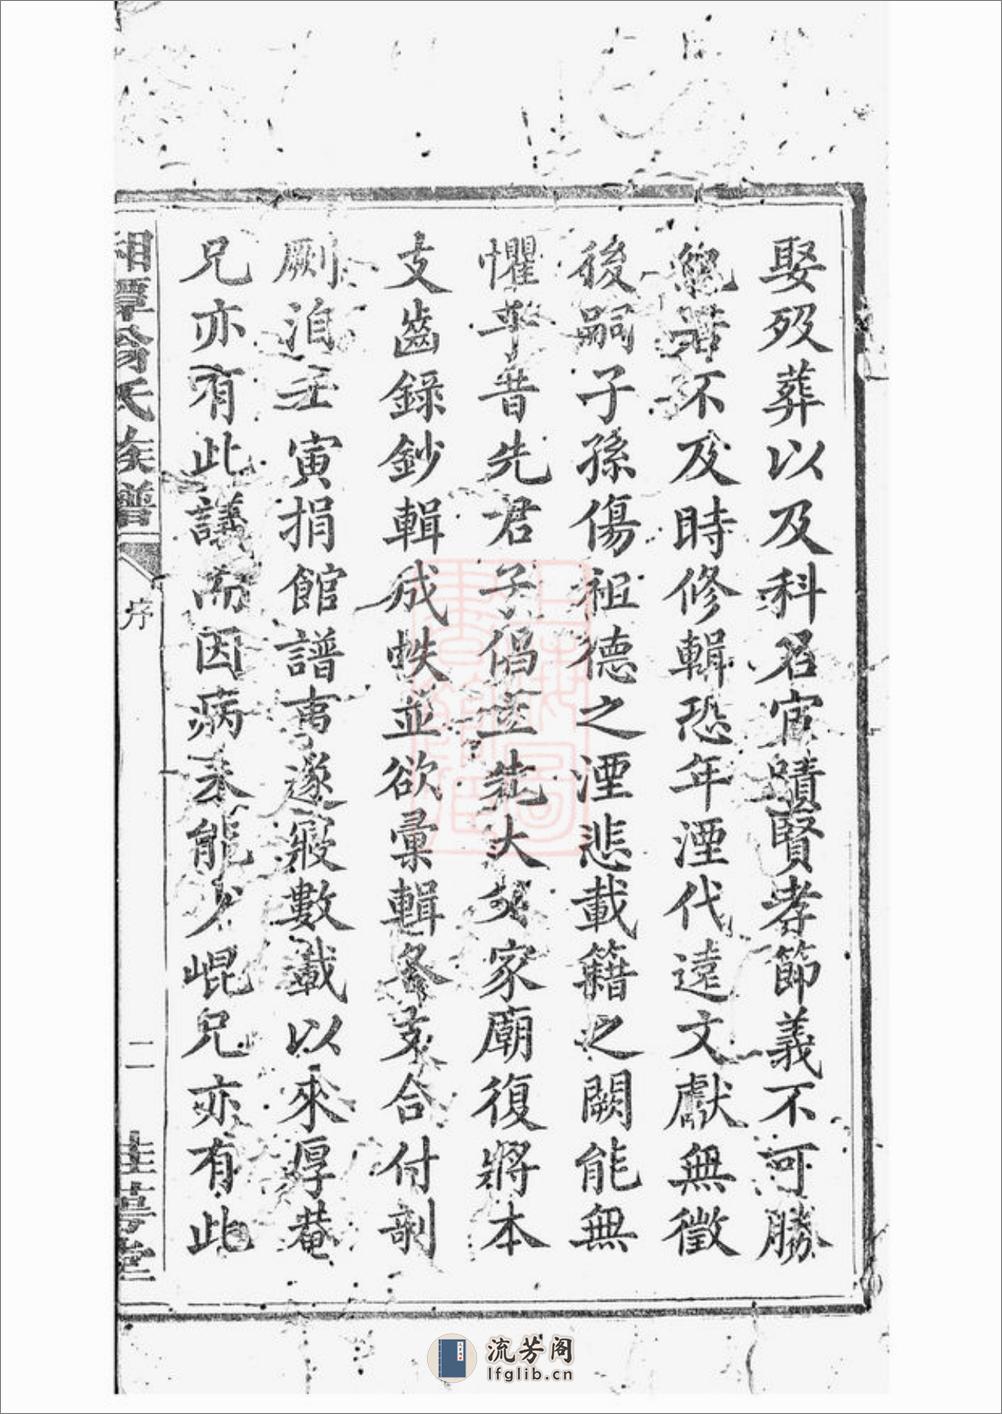 娶歿葬以及科名宦蹟賢孝節義不可勝
紀若不及時修輯恐年湮代遠文獻無徵
後嗣子孫傷祖德之湮悲載籍之闕能無
懼乎昔先君子倡立先大父家廟復將本
支齒錄鈔輯成帙並欲彙輯各支合付剞
劂洎壬寅捐館譜事遂寢數載以來厚菴
兄亦有此議而因病未能少崐兄亦有此
湘潭翁氏族譜
序
二
桂萼堂
流芳阁
lfglib.cn